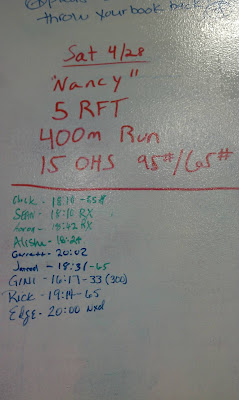 throw your book back
Sat 4/28
"Nancy"
5 RFT
400m Run
15 OHS 95#/65#
Chck - 18:10 - 55#
Sean - 18:10 RX
15:42 RX
Alisha - 18:28
Garrett - 20:02
Jarrod - 18:31 - 65
GINI - 16:17 - 33 (300)
Rick - 19:14 - 65
Edge - 20:00